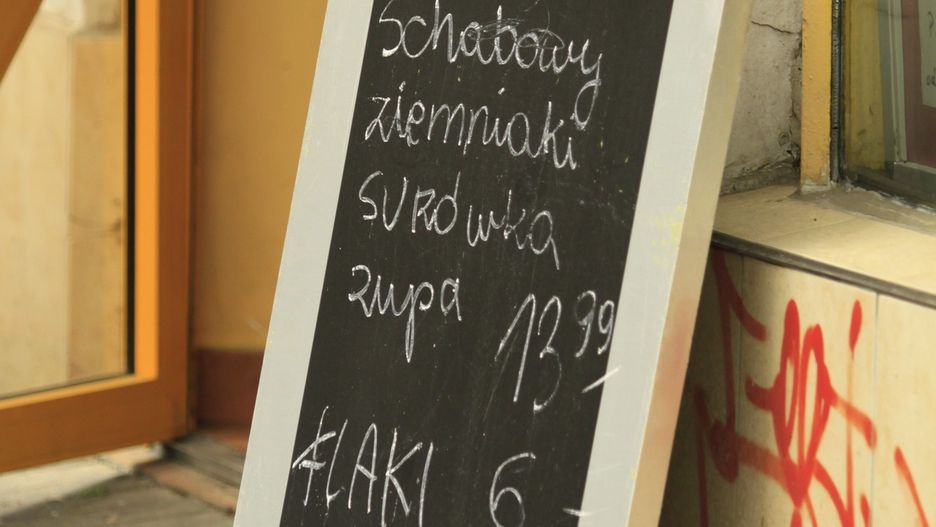 Schabowy
ziemniaki
SURÓWKA
zupa 13 99
FLAKI 6 -